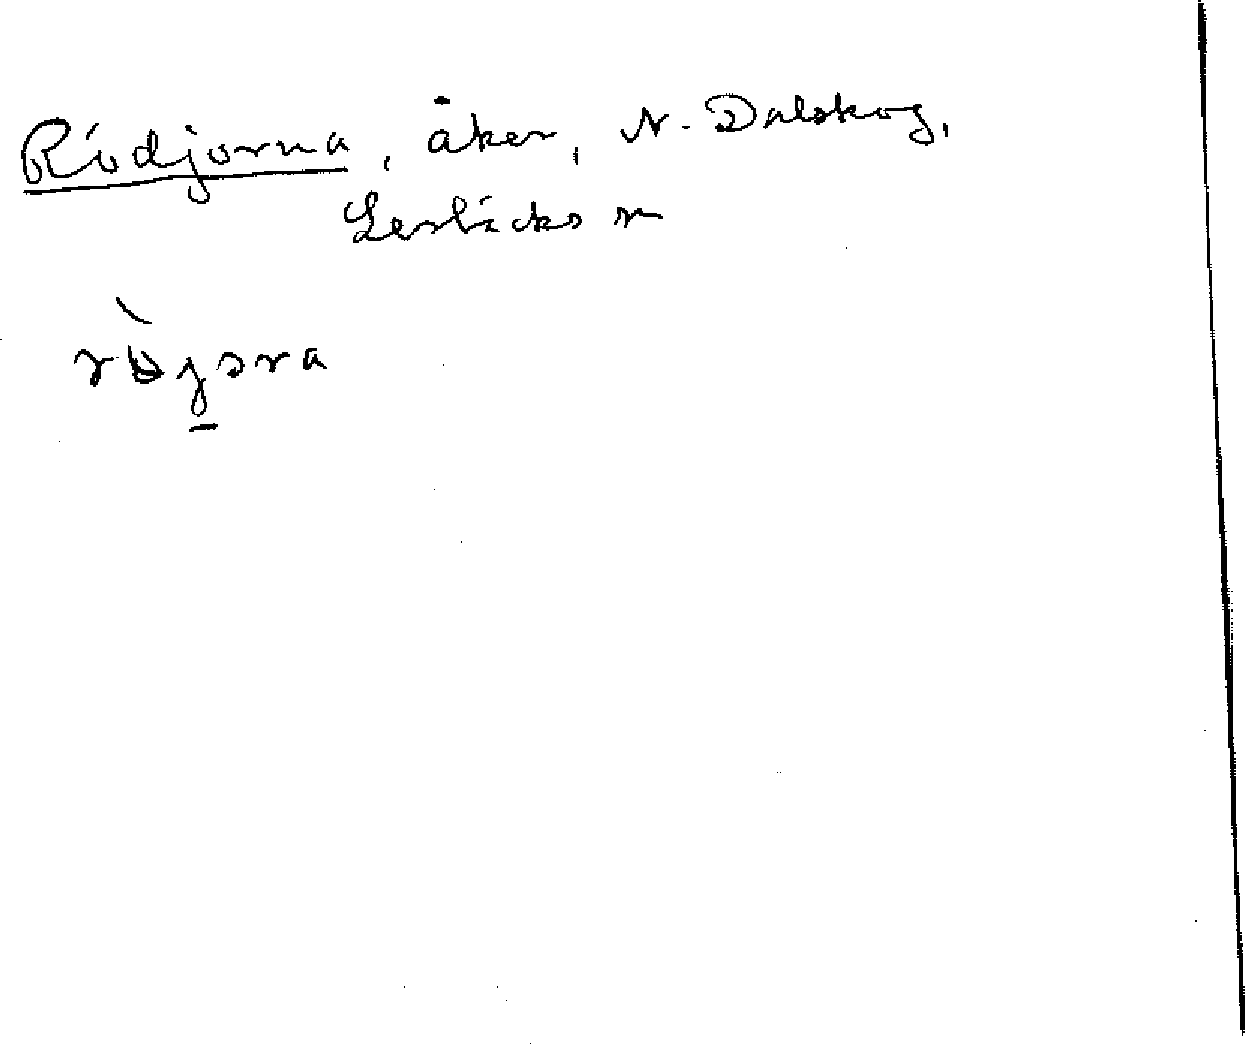 Rödjorna, åker, N. Dalskog,
Lerbäcks sn